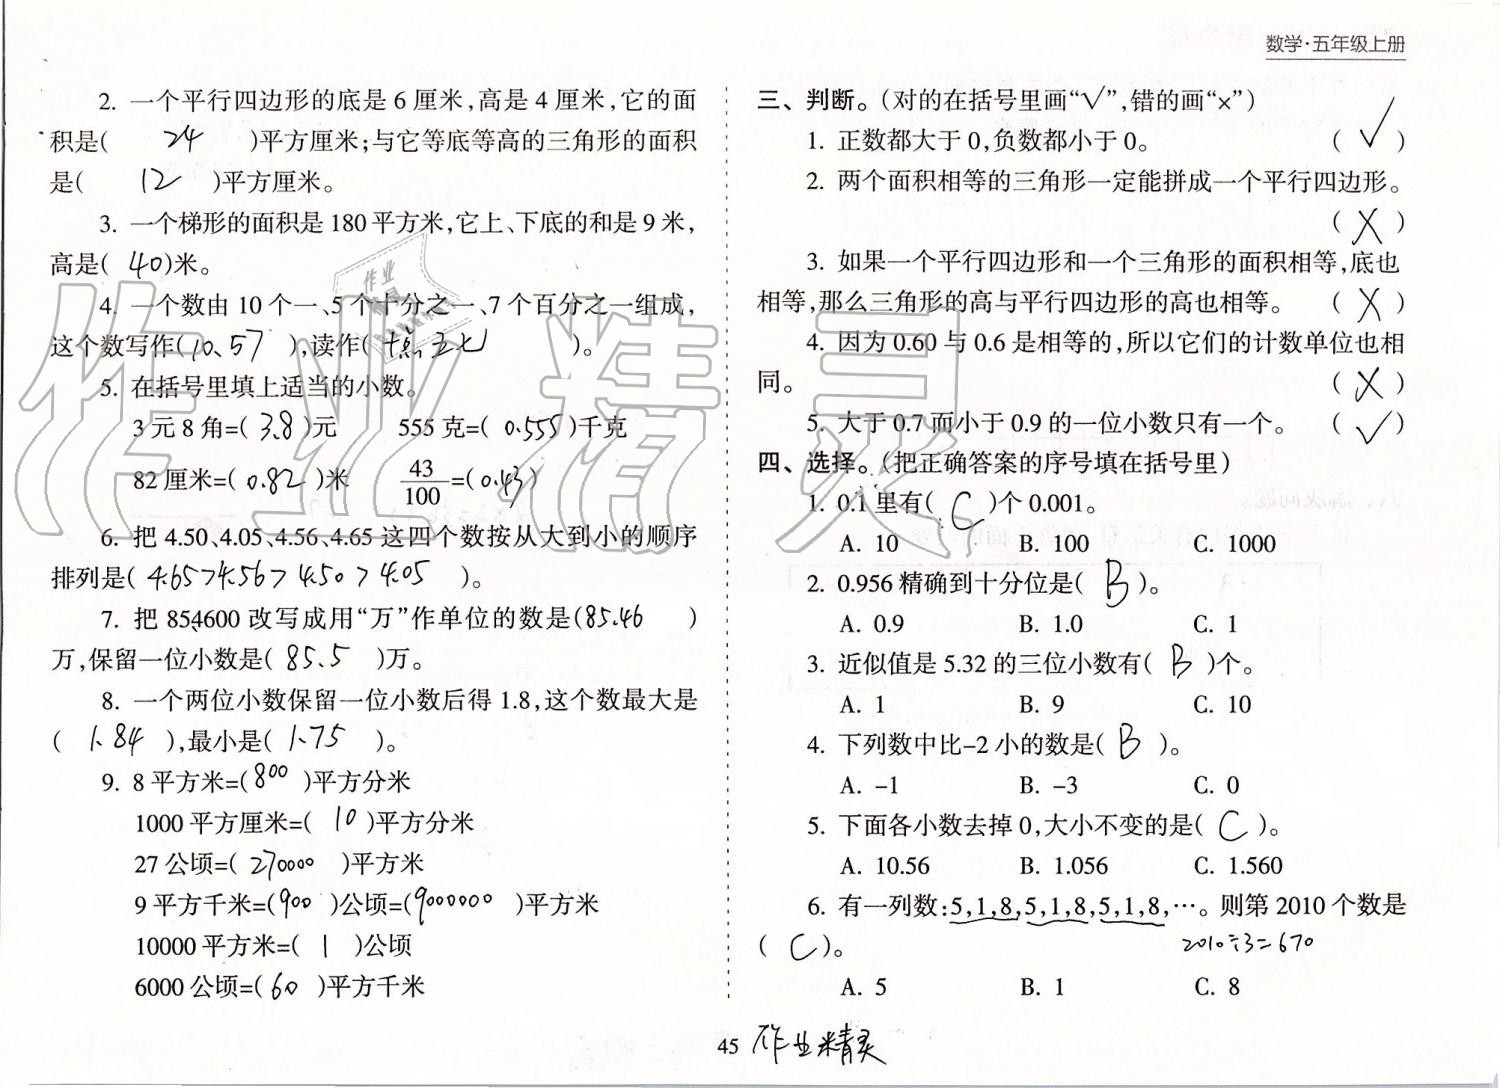 数学·五年级上册
2. 一个平行四边形的底是6厘米,高是4厘米,它的面
积是( 24 )平方厘米;与它等底等高的三角形的面积
是( 12 )平方厘米。
3. 一个梯形的面积是180平方米,它上、下底的和是9米,
高是( 40 )米。
4. 一个数由10个一、5个十分之一、7个百分之一组成,
这个数写作( 10.57 ),读作( 十点五七 )。
5. 在括号里填上适当的小数。
3元8角=( 3.8 )元 555克=( 0.555 )千克
82厘米=( 0.82 )米 43/100=( 0.43 )
6. 把4.50、4.05、4.56、4.65这四个数按从大到小的顺序
排列是( 4.65>4.56>4.50>4.05 )。
7. 把854600改写成用“万”作单位的数是( 85.46 )
万,保留一位小数是( 85.5 )万。
8. 一个两位小数保留一位小数后得1.8,这个数最大是
( 1.84 ),最小是( 1.75 )。
9. 8平方米=( 800 )平方分米
1000平方厘米=( 10 )平方分米
27公顷=( 270000 )平方米
9平方千米=( 900 )公顷=( 9000000 )平方米
10000平方米=( 1 )公顷
6000公顷=( 60 )平方千米
三、判断。(对的在括号里画“√”,错的画“×”)
1. 正数都大于0,负数都小于0。 ( √ )
2. 两个面积相等的三角形一定能拼成一个平行四边形。
( × )
3. 如果一个平行四边形和一个三角形的面积相等,底也
相等,那么三角形的高与平行四边形的高也相等。 ( × )
4. 因为0.60与0.6是相等的,所以它们的计数单位也相
同。 ( × )
5. 大于0.7而小于0.9的一位小数只有一个。 ( √ )
四、选择。(把正确答案的序号填在括号里)
1. 0.1里有( C )个0.001。
A. 10 B. 100 C. 1000
2. 0.956精确到十分位是( B )。
A. 0.9 B. 1.0 C. 1
3. 近似值是5.32的三位小数有( B )个。
A. 1 B. 9 C. 10
4. 下列数中比-2小的数是( B )。
A. -1 B. -3 C. 0
5. 下面各小数去掉0,大小不变的是( C )。
A. 10.56 B. 1.056 C. 1.560
6. 有一列数:5,1,8,5,1,8,5,1,8,…。则第2010个数是
( C )。 2010÷3=670
A. 5 B. 1 C. 8
45 作业精灵
作业精灵